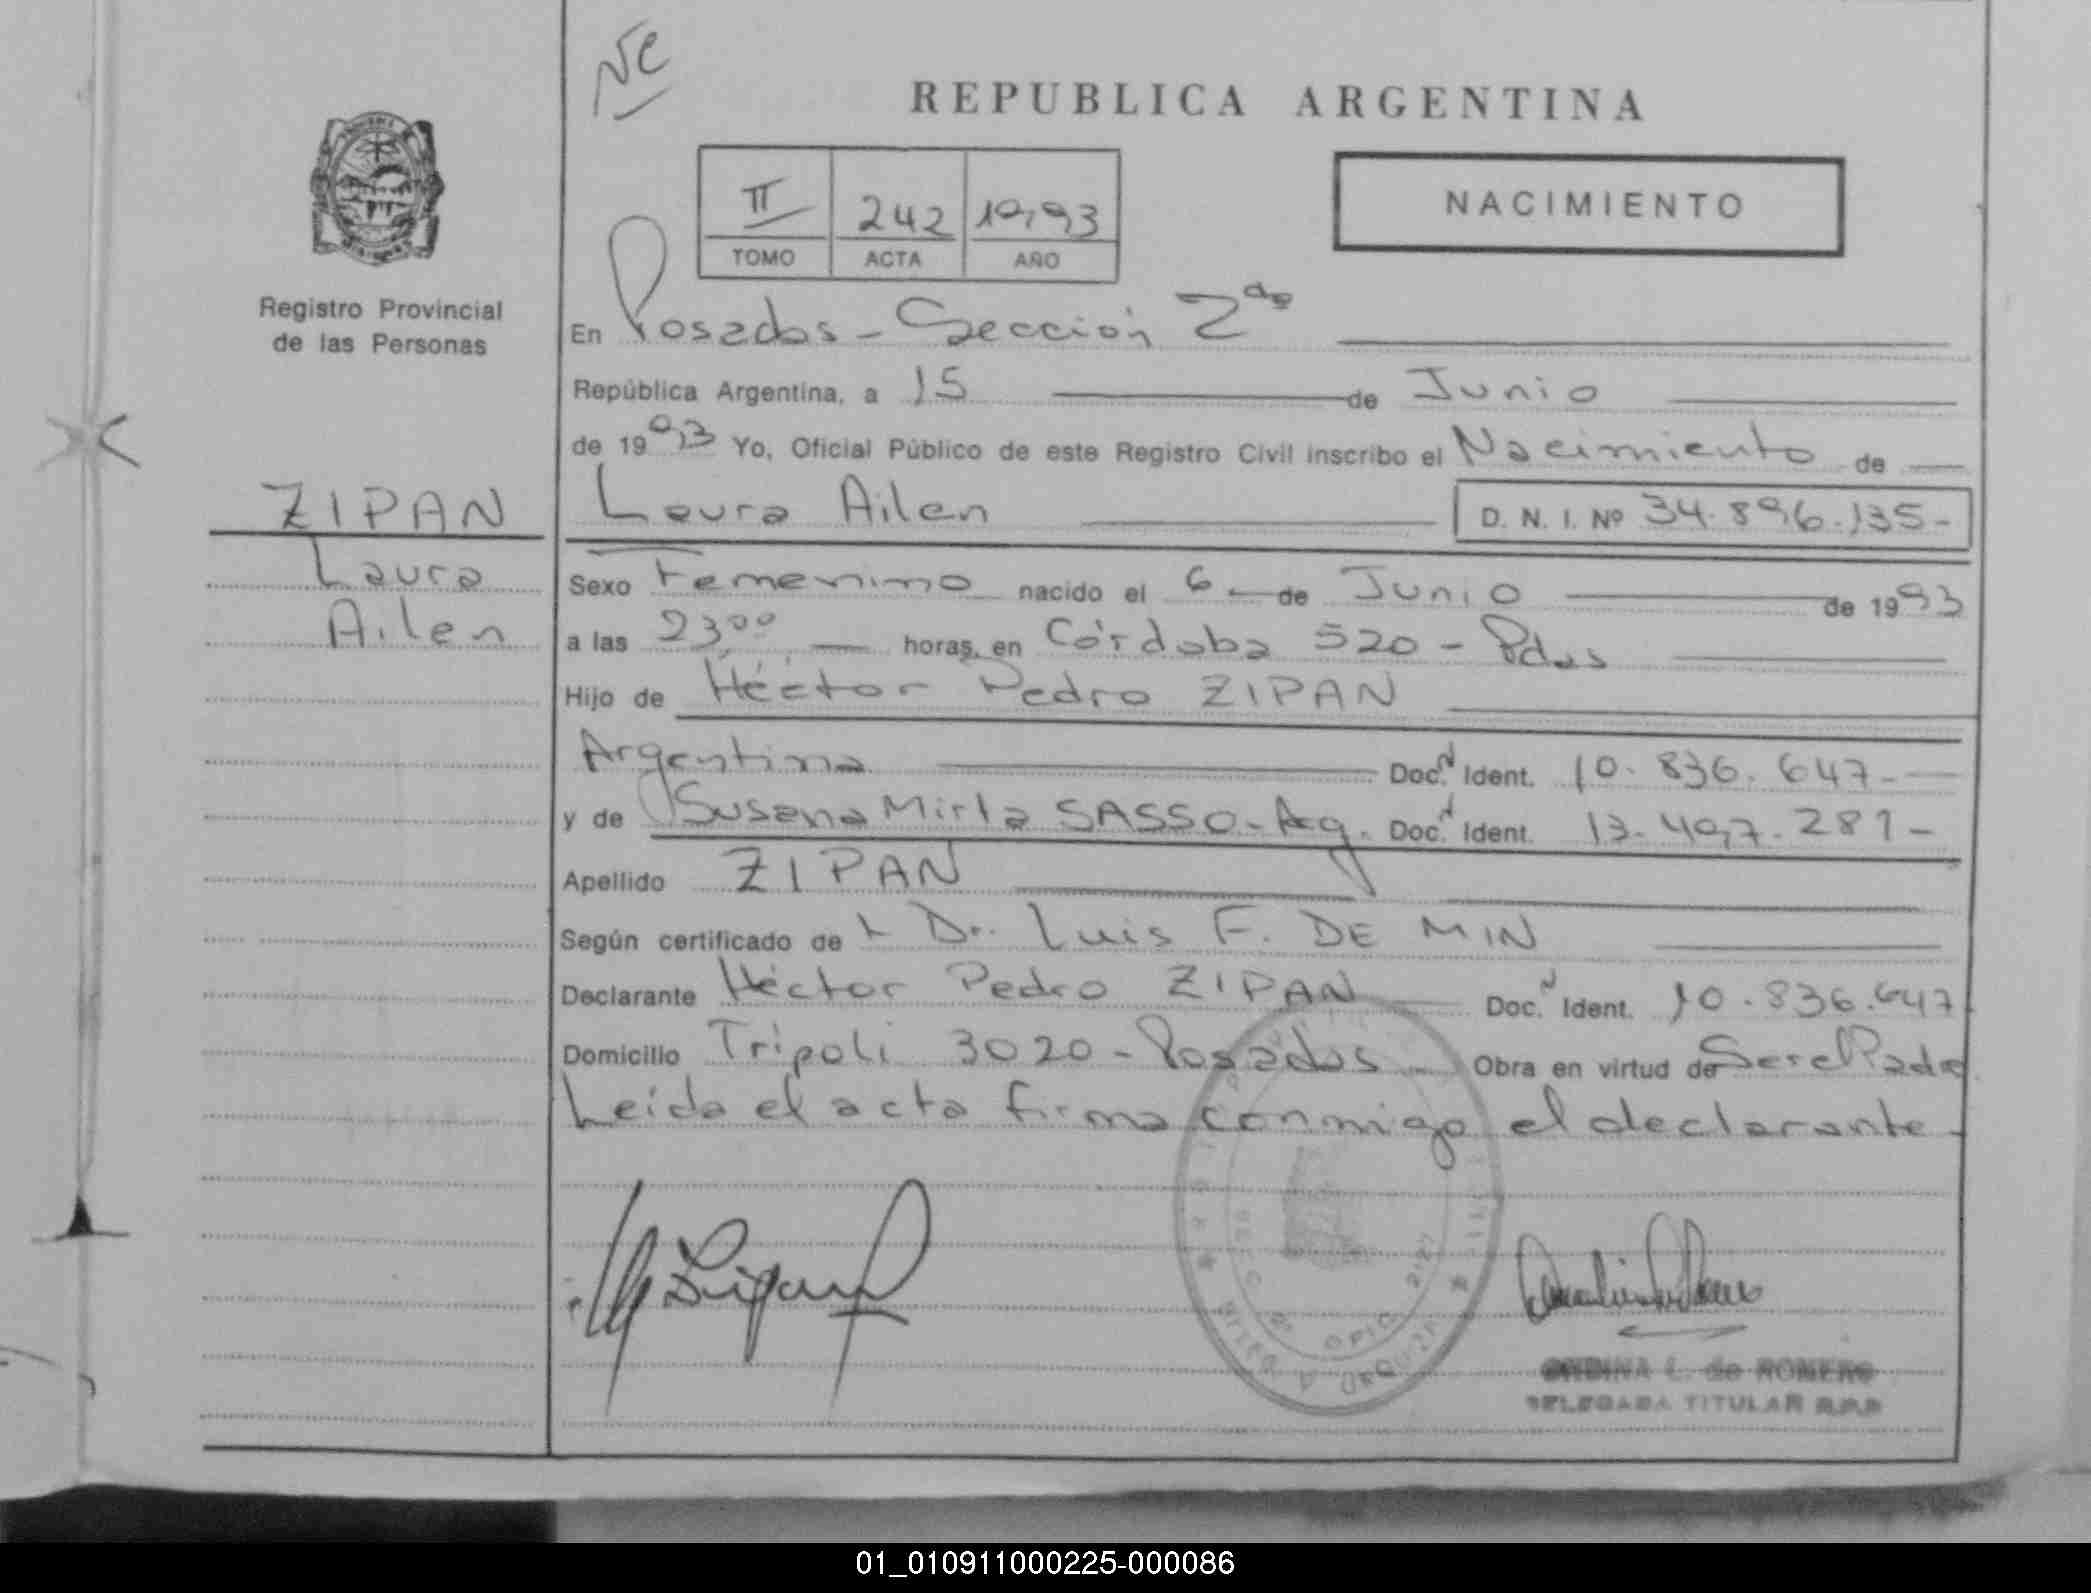 Nc
REPUBLICA ARGENTINA
II 242 1993
TOMO ACTA AÑO
NACIMIENTO
Registro Provincial
de las Personas
En Posadas - Sección 2da
República Argentina, a 15 de Junio
de 1993 Yo, Oficial Público de este Registro Civil inscribo el Nacimiento de
ZIPAN
Laura Ailen D. N. I. Nº 34.896.135-
Laura
Ailen
Sexo Femenino nacido el 6 de Junio de 1993
a las 23,00 horas, en Córdoba 520 - Pdas
Hijo de Héctor Pedro ZIPAN
Argentina Doc. N Ident. 10.836.647-
y de Susana Mirta SASSO - Arg. Doc. Ident. 13.497.281-
Apellido ZIPAN
Según certificado de Dr. Luis F. DE MIN
Declarante Héctor Pedro ZIPAN Doc. N Ident. 10.836.647
Domicilio Trípoli 3020 - Posadas Obra en virtud de Ser el Padre
Leída el acta firma conmigo el declarante
ONDINA L. de ROMERO
DELEGADA TITULAR R.P.P
01_010911000225-000086